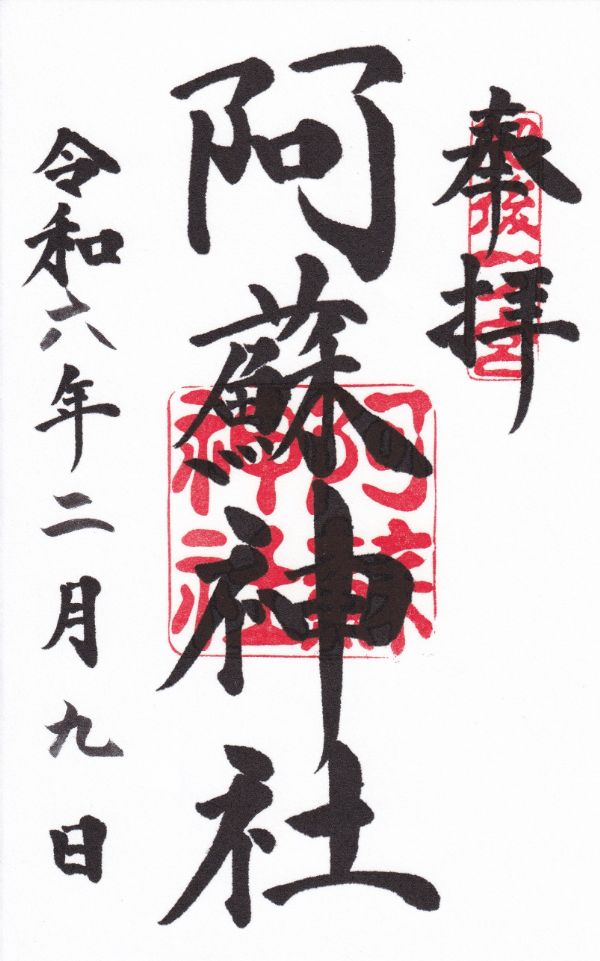 奉拝
肥後一宮
阿蘇神社
阿蘇神社
令和六年二月九日